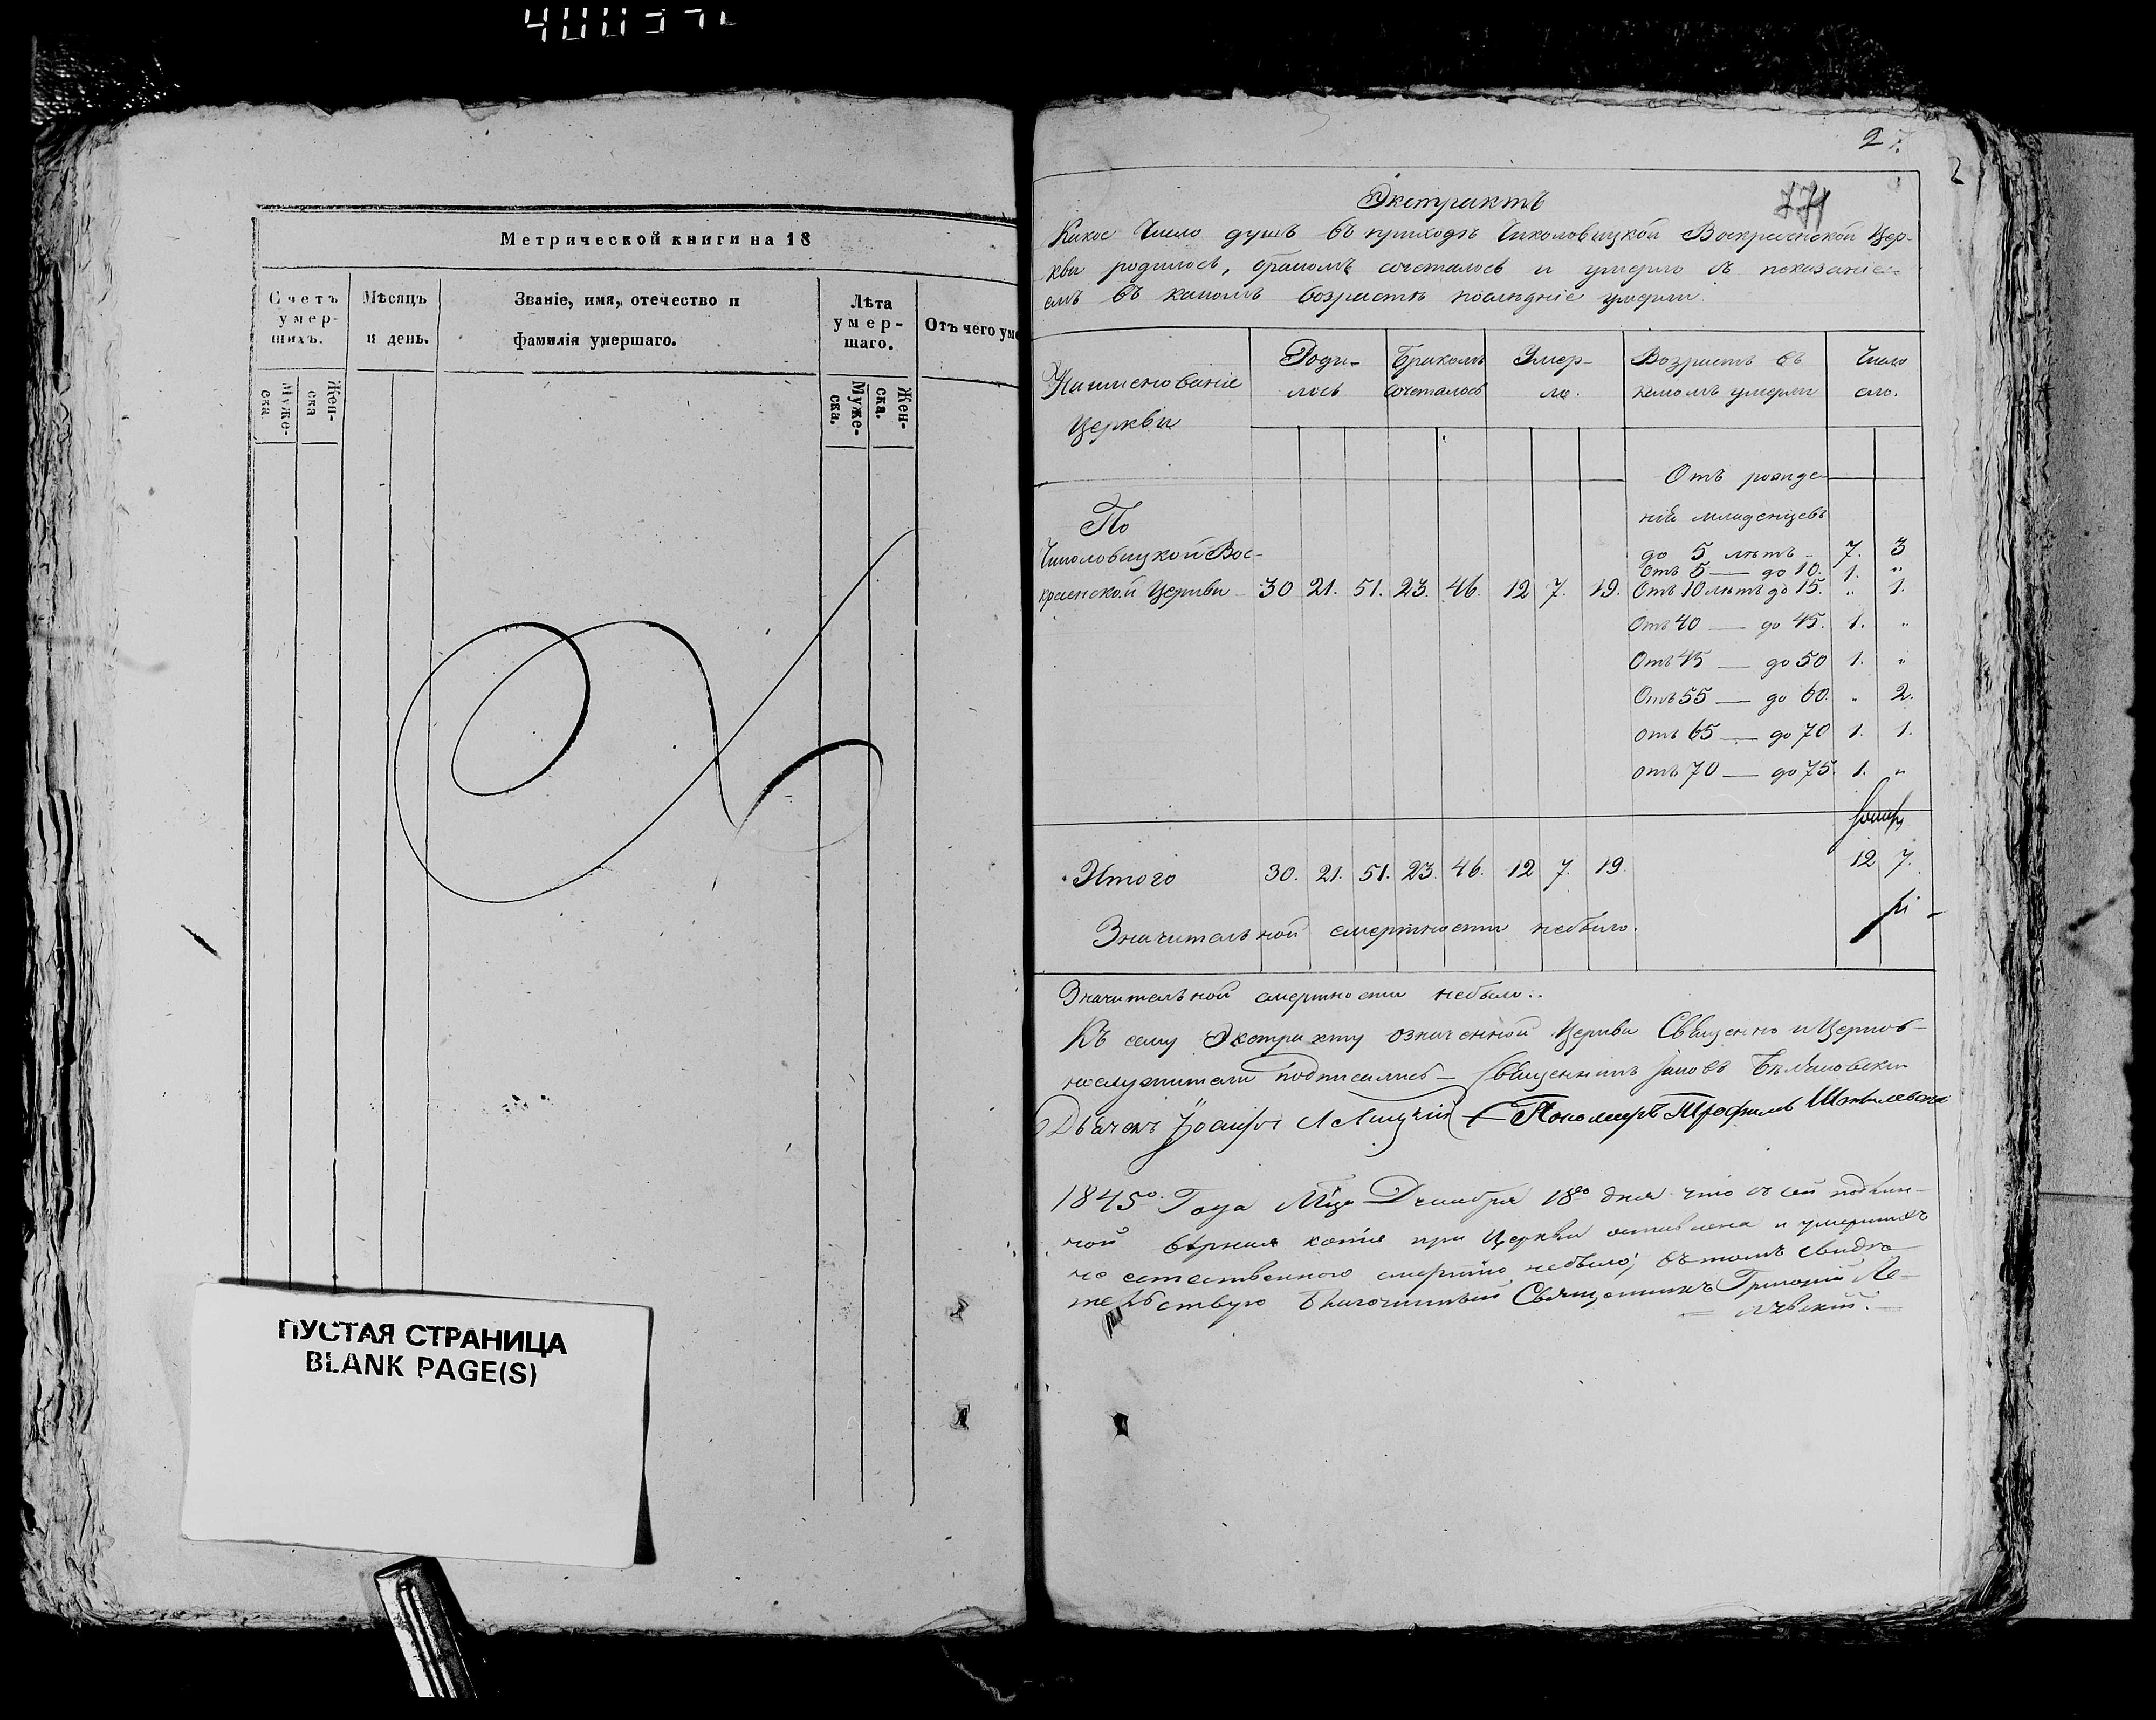 Метрической книги на 18
Счетъ умер-шихъ.
Мѣсяцъ и день.
Званіе, имя, отечество и фамилія умершаго.
Лѣта умер-шаго.
Отъ чего уме
Муже-ска
Жен-ска
Муже-ска.
Жен-ска.
ПУСТАЯ СТРАНИЦА
BLANK PAGE(S)
27.
2
771
Экстрактъ
Какое число душъ въ приходѣ Чиколовицкой Воскресенской Цер-
кви родилось, бракомъ сочеталось и умерло съ показаніе-
емъ въ какомъ возрастѣ послѣдніе умерли.
Наименованіе Церкви
Роди-лось
Бракомъ сочеталось
Умер-ло.
Возрастъ въ какомъ умерли
Число сло.
Отъ рожде-
ній младенцевъ
По
Чиколовицкой Вос-
до 5 лѣтъ - 7. 3
Отъ 5 — до 10. 1. "
кресенской Церкви 30 21. 51. 23. 46. 12 7. 19. Отъ 10 лѣтъ до 15. " 1.
Отъ 40 — до 45. 1. "
Отъ 45 — до 50 1. "
Отъ 55 — до 60. " 2.
отъ 65 — до 70 1. 1.
отъ 70 — до 75. 1. "
Итого 30. 21. 51. 23. 46. 12 7. 19. 12 7.
Значительной смертности небыло.
Значительной смертности небыло..
Къ сему Экстракту означенной Церкви Священно и Церков-
нослужители подписались — Священникъ
Дьячекъ Пономаръ Трофимъ
1845го Года Мца Декабря 18го дня что съ сей подлин-
ной вѣрная копія при Церкви оставлена и умершихъ
не естественною смертію небыло, въ томъ свидѣ-
тельствую Благочинный Священникъ Григорій